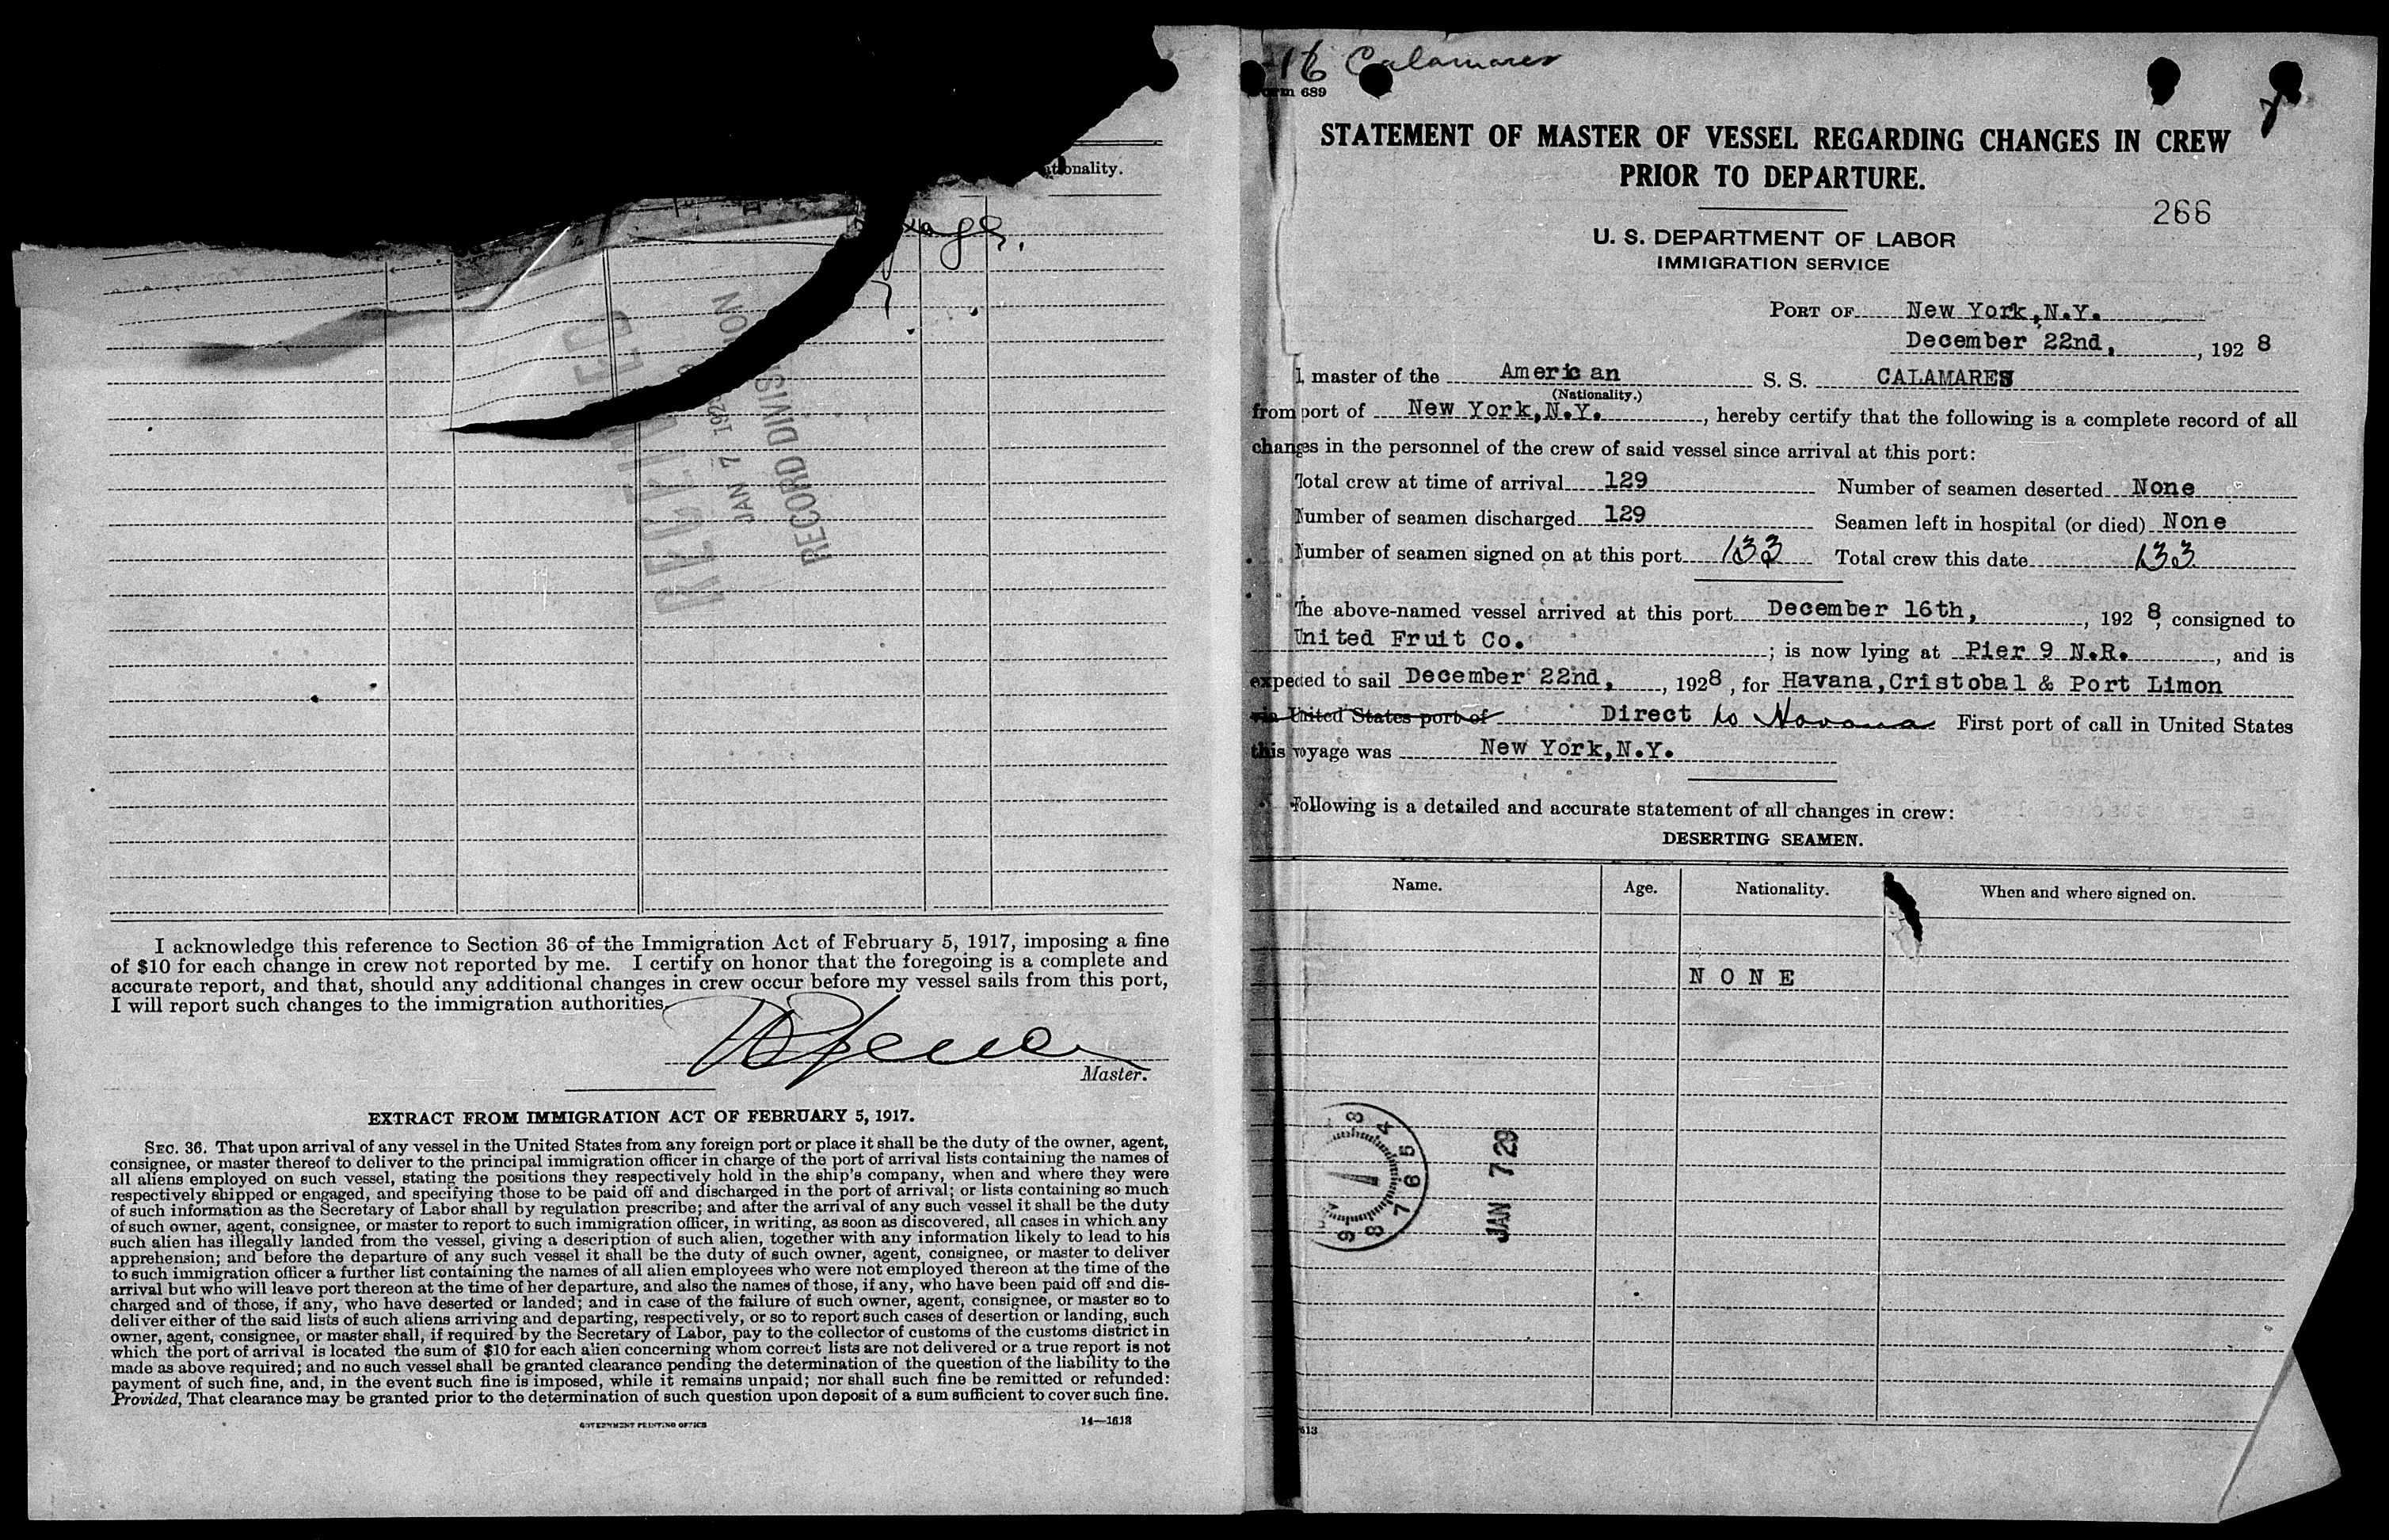 ationality.
RECEIVED
JAN 7 192
RECORD DIVISION
I acknowledge this reference to Section 36 of the Immigration Act of February 5, 1917, imposing a fine
of $10 for each change in crew not reported by me. I certify on honor that the foregoing is a complete and
accurate report, and that, should any additional changes in crew occur before my vessel sails from this port,
I will report such changes to the immigration authorities.
Master.
EXTRACT FROM IMMIGRATION ACT OF FEBRUARY 5, 1917.
SEC. 36. That upon arrival of any vessel in the United States from any foreign port or place it shall be the duty of the owner, agent,
consignee, or master thereof to deliver to the principal immigration officer in charge of the port of arrival lists containing the names of
all aliens employed on such vessel, stating the positions they respectively hold in the ship's company, when and where they were
respectively shipped or engaged, and specifying those to be paid off and discharged in the port of arrival; or lists containing so much
of such information as the Secretary of Labor shall by regulation prescribe; and after the arrival of any such vessel it shall be the duty
of such owner, agent, consignee, or master to report to such immigration officer, in writing, as soon as discovered, all cases in which any
such alien has illegally landed from the vessel, giving a description of such alien, together with any information likely to lead to his
apprehension; and before the departure of any such vessel it shall be the duty of such owner, agent, consignee, or master to deliver
to such immigration officer a further list containing the names of all alien employees who were not employed thereon at the time of the
arrival but who will leave port thereon at the time of her departure, and also the names of those, if any, who have been paid off and dis-
charged and of those, if any, who have deserted or landed; and in case of the failure of such owner, agent, consignee, or master so to
deliver either of the said lists of such aliens arriving and departing, respectively, or so to report such cases of desertion or landing, such
owner, agent, consignee, or master shall, if required by the Secretary of Labor, pay to the collector of customs of the customs district in
which the port of arrival is located the sum of $10 for each alien concerning whom correct lists are not delivered or a true report is not
made as above required; and no such vessel shall be granted clearance pending the determination of the question of the liability to the
payment of such fine, and, in the event such fine is imposed, while it remains unpaid; nor shall such fine be remitted or refunded:
Provided, That clearance may be granted prior to the determination of such question upon deposit of a sum sufficient to cover such fine.
GOVERNMENT PRINTING OFFICE 14—1613
16 Calamares
Form 689
STATEMENT OF MASTER OF VESSEL REGARDING CHANGES IN CREW
PRIOR TO DEPARTURE.
266
U. S. DEPARTMENT OF LABOR
IMMIGRATION SERVICE
PORT OF New York, N.Y.
December 22nd, , 192 8
I, master of the American S. S. CALAMARES
(Nationality.)
from port of New York, N.Y. , hereby certify that the following is a complete record of all
changes in the personnel of the crew of said vessel since arrival at this port:
Total crew at time of arrival 129 Number of seamen deserted None
Number of seamen discharged 129 Seamen left in hospital (or died) None
Number of seamen signed on at this port 133 Total crew this date 133
The above-named vessel arrived at this port December 16th, , 192 8, consigned to
United Fruit Co. ; is now lying at Pier 9 N.R. , and is
expected to sail December 22nd, , 1928 , for Havana, Cristobal & Port Limon
via United States port of Direct to Havana First port of call in United States
this voyage was New York, N.Y.
Following is a detailed and accurate statement of all changes in crew:
DESERTING SEAMEN.
Name. Age. Nationality. When and where signed on.
N O N E
3 4 5 6 7 8 9
JAN 7 29
613